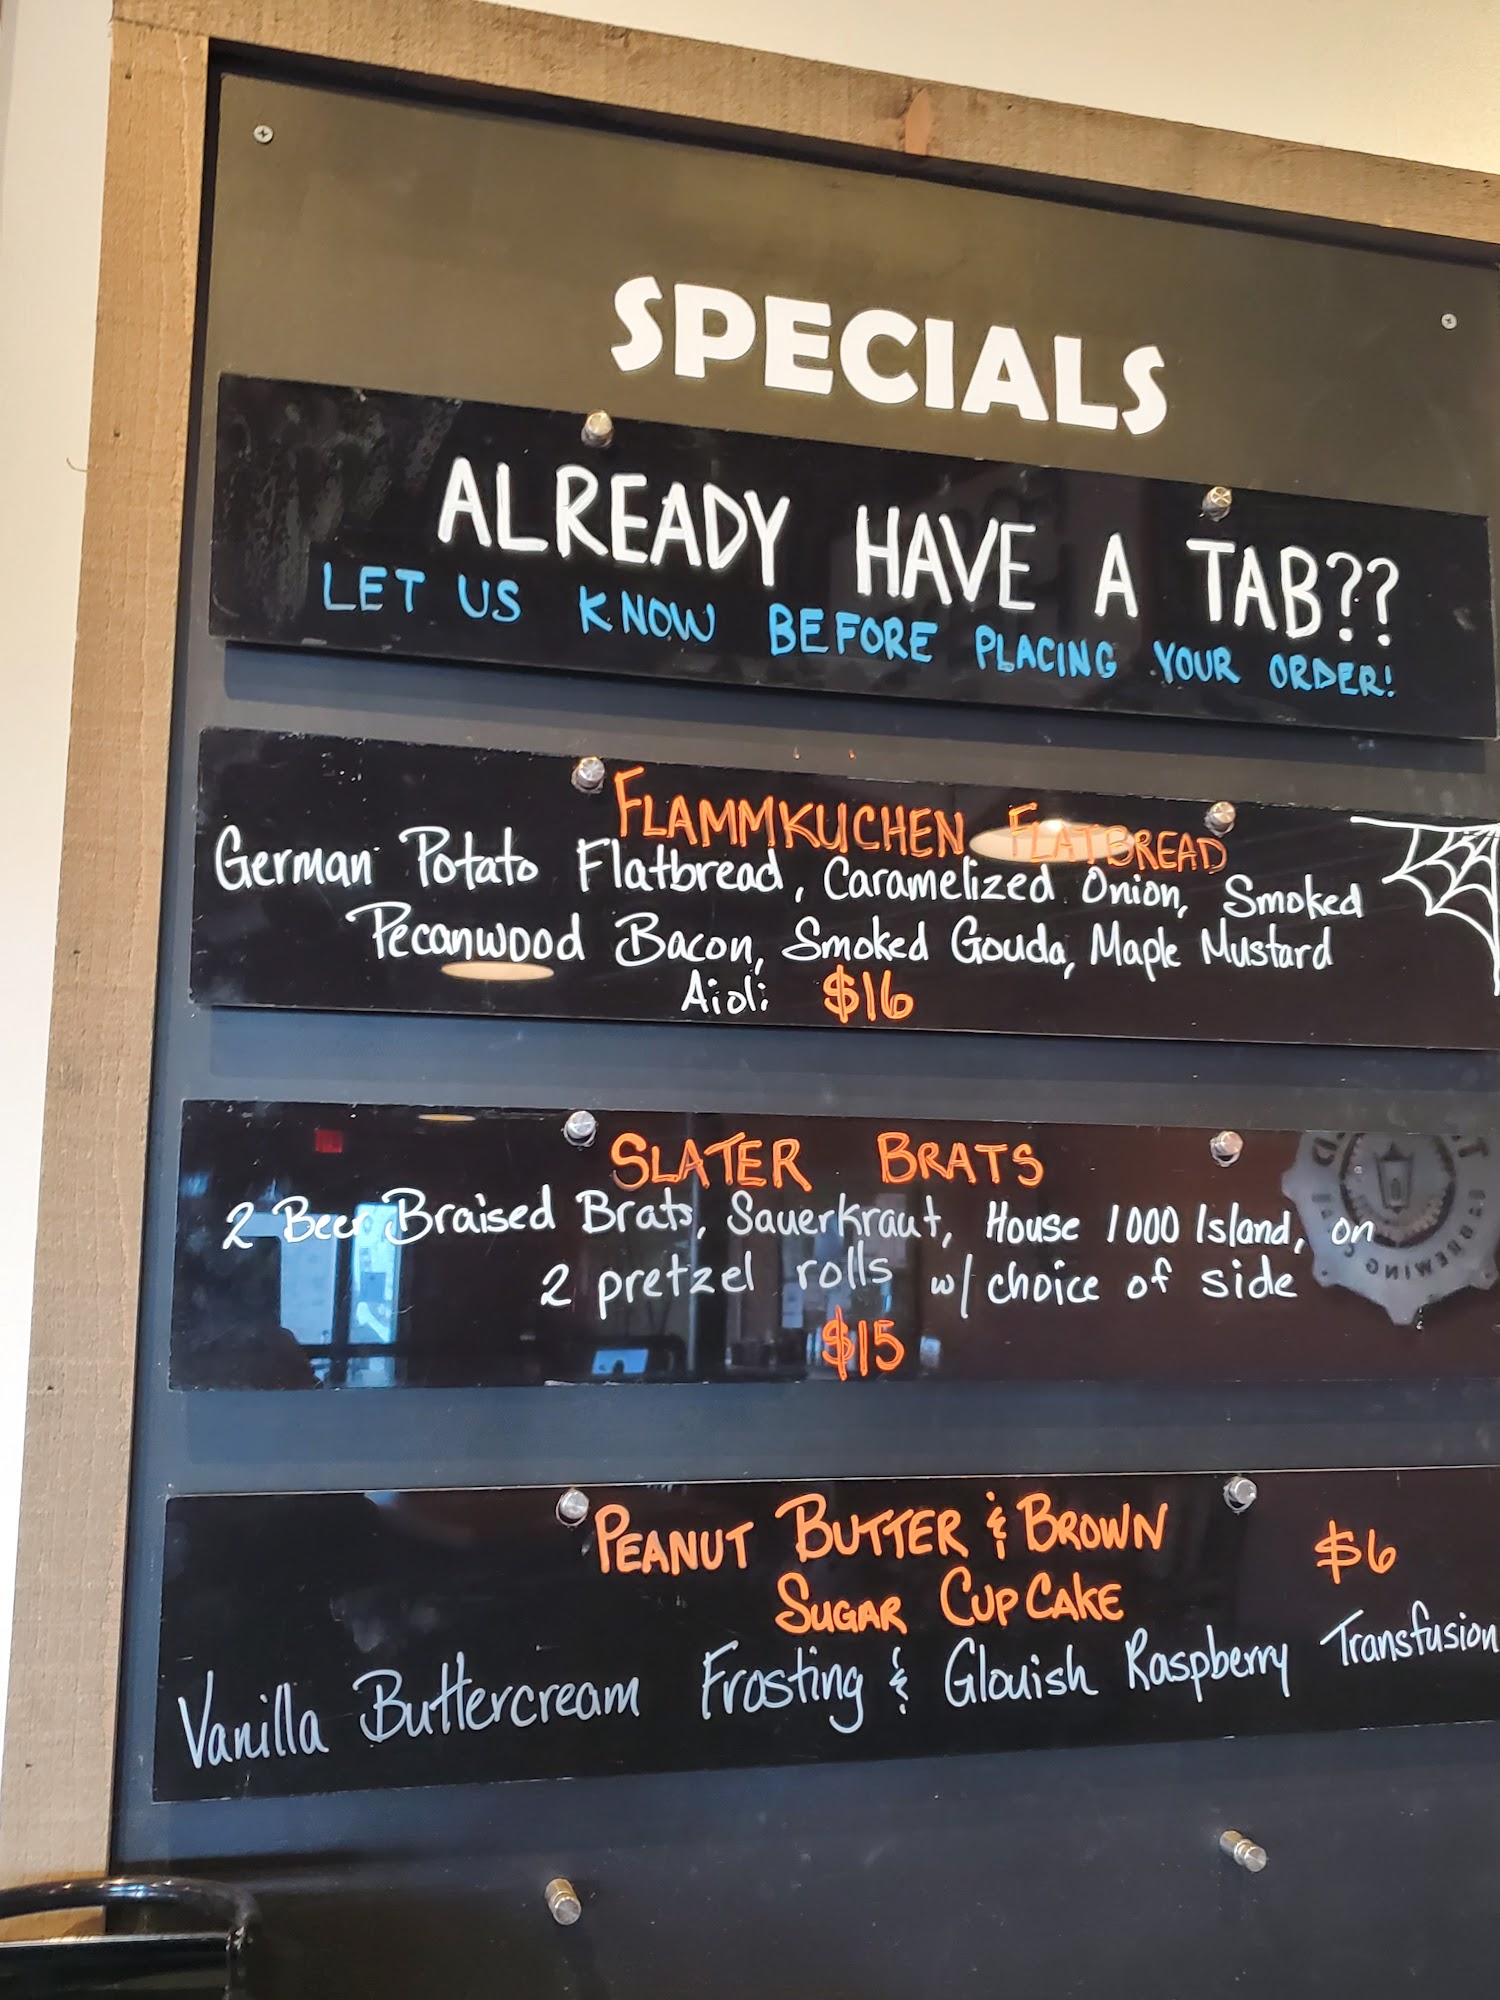 SPECIALS
ALREADY HAVE A TAB??
LET US KNOW BEFORE PLACING YOUR ORDER!
FLAMMKUCHEN FLATBREAD
German Potato Flatbread, Caramelized Onion, Smoked
Pecanwood Bacon, Smoked Gouda, Maple Mustard
Aioli $16
SLATER BRATS
2 Beer Braised Brats, Sauerkraut, House 1000 Island, on
2 pretzel rolls w/ choice of side
$15
PEANUT BUTTER & BROWN
SUGAR CUPCAKE $6
Vanilla Buttercream Frosting & Glouish Raspberry Transfusion